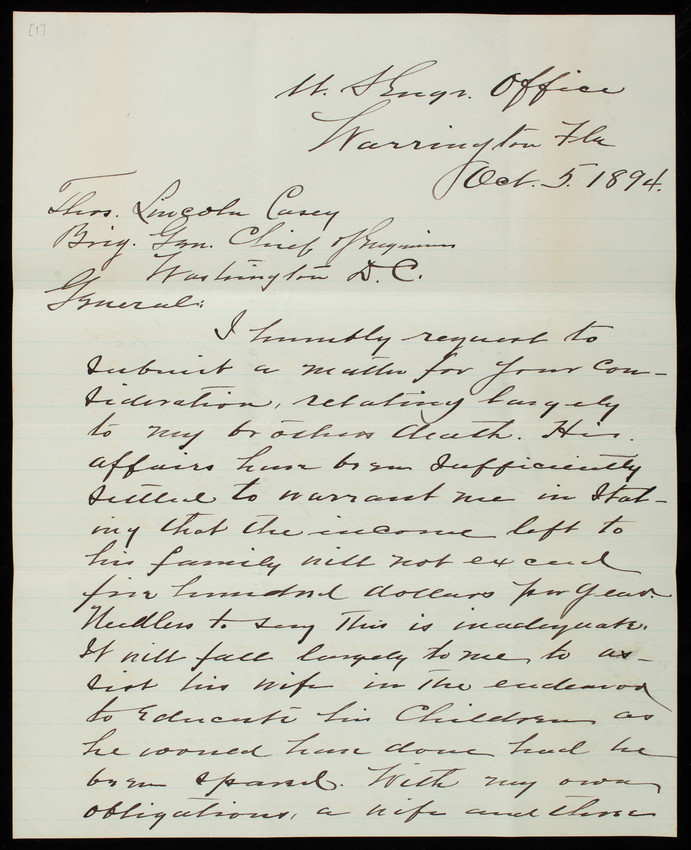 [1]
U. S Engr. Office
Warrington Fla
Oct. 5. 1894.
Thos. Lincoln Casey
Brig. Gen. Chief of Engineers
Washington D. C.
General:
I humbly request to
submit a matter for your con-
sideration, relating largely
to my brothers death. His
affairs have been sufficiently
settled to warrant me in stat-
ing that the income left to
his family will not exceed
five hundred dollars per year.
Needless to say this is inadequate.
It will fall largely to me to as-
sist his wife in the endeavor
to educate his children as
he would have done had he
been spared. With my own
obligations, a wife and three